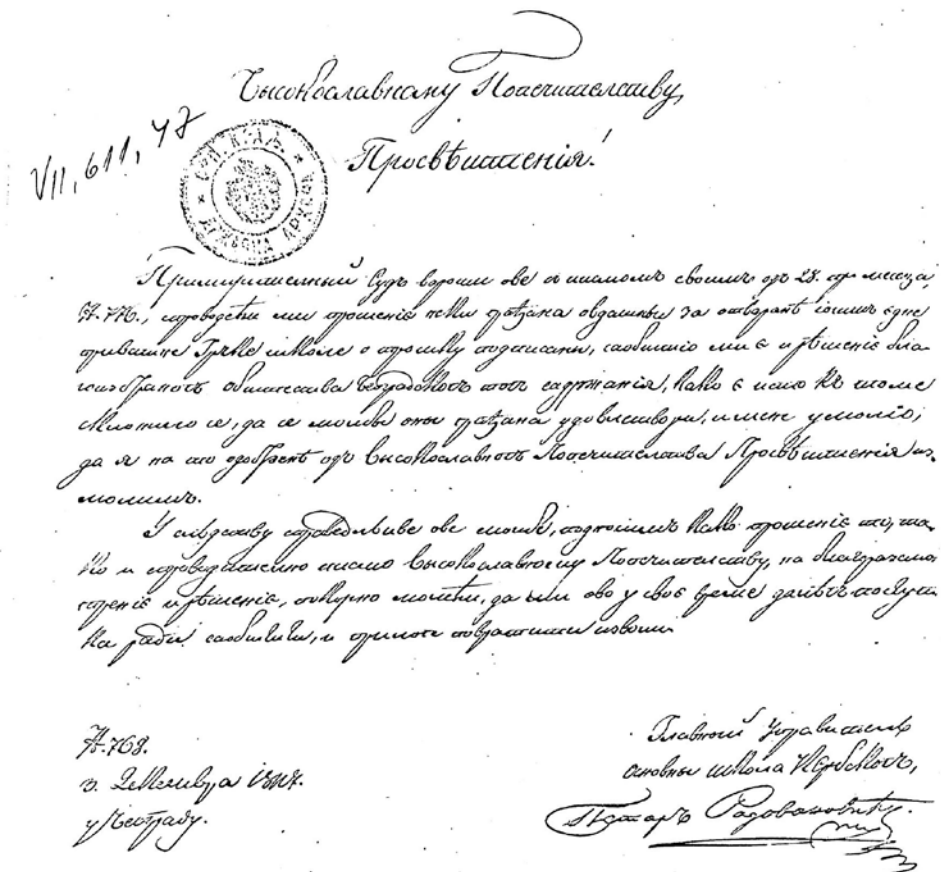 Высокославному Попечителству,
Просвѣштенія!
VII, 611, 47
Примирителный Судъ вароши ове съ писмомъ своимъ одъ 28. пр. месеца,
№. 776., спроводећи ми прошеніе неки грађана овдашњи за отваранѣ іоштъ едне
приватне Грчке школе о трошку подписаны, саобштіо ми є и рѣшеніе
общества Београдскогъ тогъ содржанія, како є исто къ томе
склонило се, да се молба овы грађана удовлетвори, и мене умоліо,
да я на то одобренѣ одъ Высокославногъ Попечителства Просвѣштенія из-
молимъ.
У слѣдству ове молбе, подносимъ како прошеніе то, та-
ко и спроводително писмо Высокославному Попечителству, на благоразсмо-
треніе и рѣшеніе, покорно молећи, да ми ово у свое време далѣгъ поступ-
ка ради саобштити, и прилоге повратити изволи.
№. 768.
Декемвра
у Београду.
Главный Управитель
основны школа Сербскогъ,
Петаръ Радовановићъ.